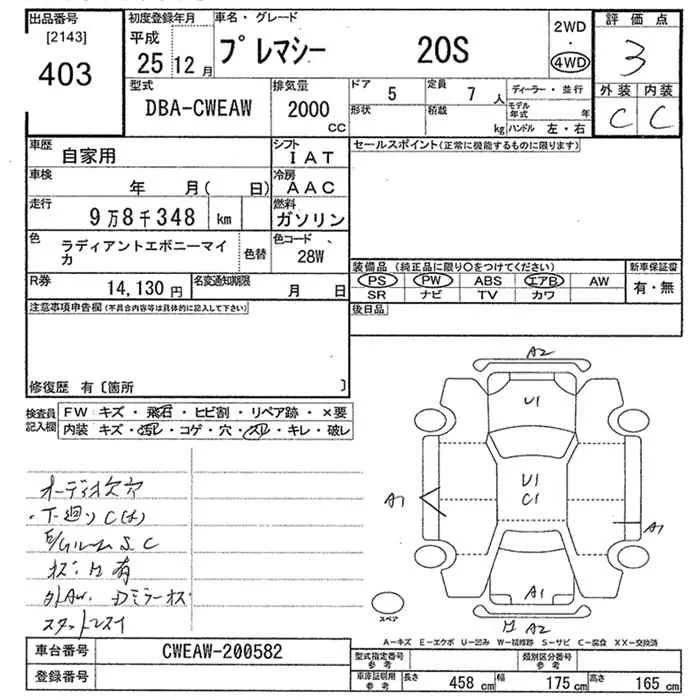 出品番号
[2143]
403
初度登録年月
平成
25 12 月
車名・グレード
プレマシー 20S
2WD
・
4WD
評価点
3
外装 内装
C C
型式
DBA-CWEAW
排気量
2000
CC
ドア 5
定員 7 人
形状
積載 kg
ディーラー・並行
モデル年式 年
ハンドル 左・右
車歴
自家用
シフト
IAT
車検
年 月( 日)
冷房
AAC
走行
9万8千348 km
燃料
ガソリン
色
ラディアントエボニーマイカ
色替
色コード
28W
R券
14,130 円
名変通知期限
月 日
セールスポイント(正常に機能するものに限ります)
装備品 (純正品に限り○をつけてください)
PS PW ABS エアB AW
SR ナビ TV カワ
新車保証書
有・無
後日品
注意事項申告欄(不具合内容等は具体的に記入して下さい)
修復歴 有〔箇所 〕
検査員記入欄
FW キズ・飛石・ヒビ割・リペア跡・×要
内装 キズ・汚レ・コゲ・穴・スレ・キレ・破レ
オーディオ欠穴
・下廻りC(大)
E/GルームS.C
有
外AW. Dミラーキズ
スタットレスタイ
A2
U1
U1
C1
A1
A1
A1
A2
スペア
A-キズ E-エクボ U-凹み W-補修跡 S-サビ C-腐食 XX-交換済
車台番号
CWEAW-200582
登録番号
型式指定番号
参考
類別区分番号
参考
車庫証明用
参考
長さ 458 cm
幅 175 cm
高さ 165 cm